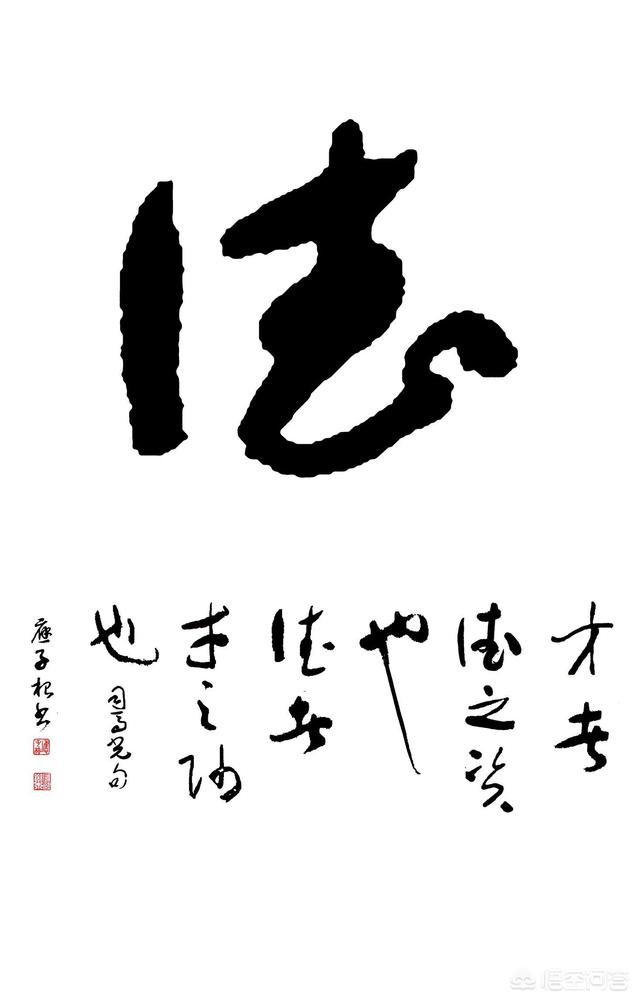 德
才者
德之资
也
德者
才之帅
也
司马光句
应子根书
悟空问答